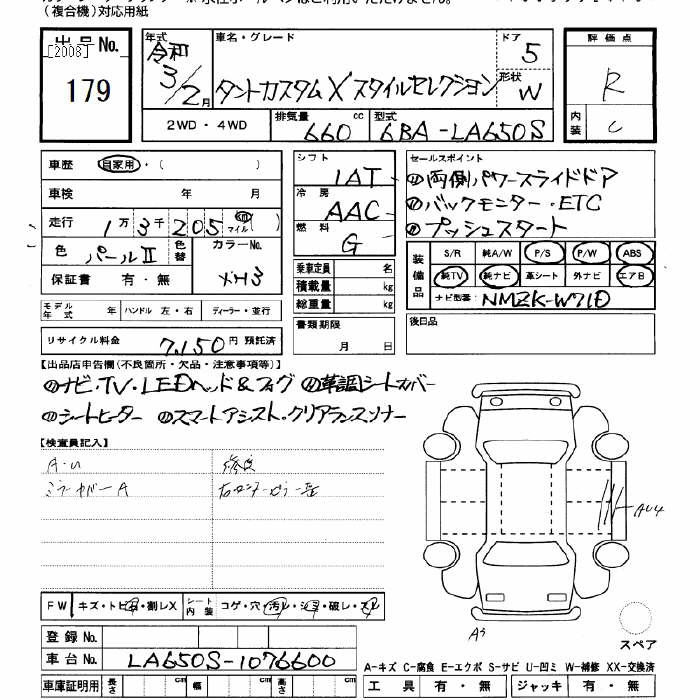 (複合機)対応用紙
出品No.
[2008]
179
年式 令和 3/2月
車名・グレード
タントカスタム X スタイルセレクション
ドア 5
形状 W
評価点
R
内装 C
2WD・4WD
排気量 660 cc
型式 6BA-LA650S
車歴 自家用・( )
車検 年 月
走行 1万3千205 km マイル( )
色 パールⅡ 色替 カラーNo. XH3
保証書 有・無
シフト 1AT
冷房 AAC
燃料 G
乗車定員 名
積載量 kg
総重量 kg
書類期限
月 日
セールスポイント
両側パワースライドドア
バックモニター・ETC
プッシュスタート
装備品
S/R 純A/W P/S P/W ABS
純TV 純ナビ 革シート 外ナビ エアB
ナビ型番: NMZK-W71D
後日品
モデル年式 年 ハンドル 左・右 ディーラー・並行
リサイクル料金 7,150円 預託済
【出品店申告欄(不良箇所・欠品・注意事項等)】
ナビ・TV・LEDヘッド&フォグ 革調シートカバー
シートヒーター スマートアシスト・クリアランスソナー
【検査員記入】
A・U 修復
ミラーカバーA
AU4
FW キズ・トビ石・割レX
シート内装 コゲ・穴・汚レ・シミ・破レ・スレ
登録No.
車台No. LA650S-1076600
車庫証明用 長さ cm 幅 cm 高さ cm
スペア
A-キズ C-腐食 E-エクボ S-サビ U-凹ミ W-補修 XX-交換済
工具 有・無 ジャッキ 有・無